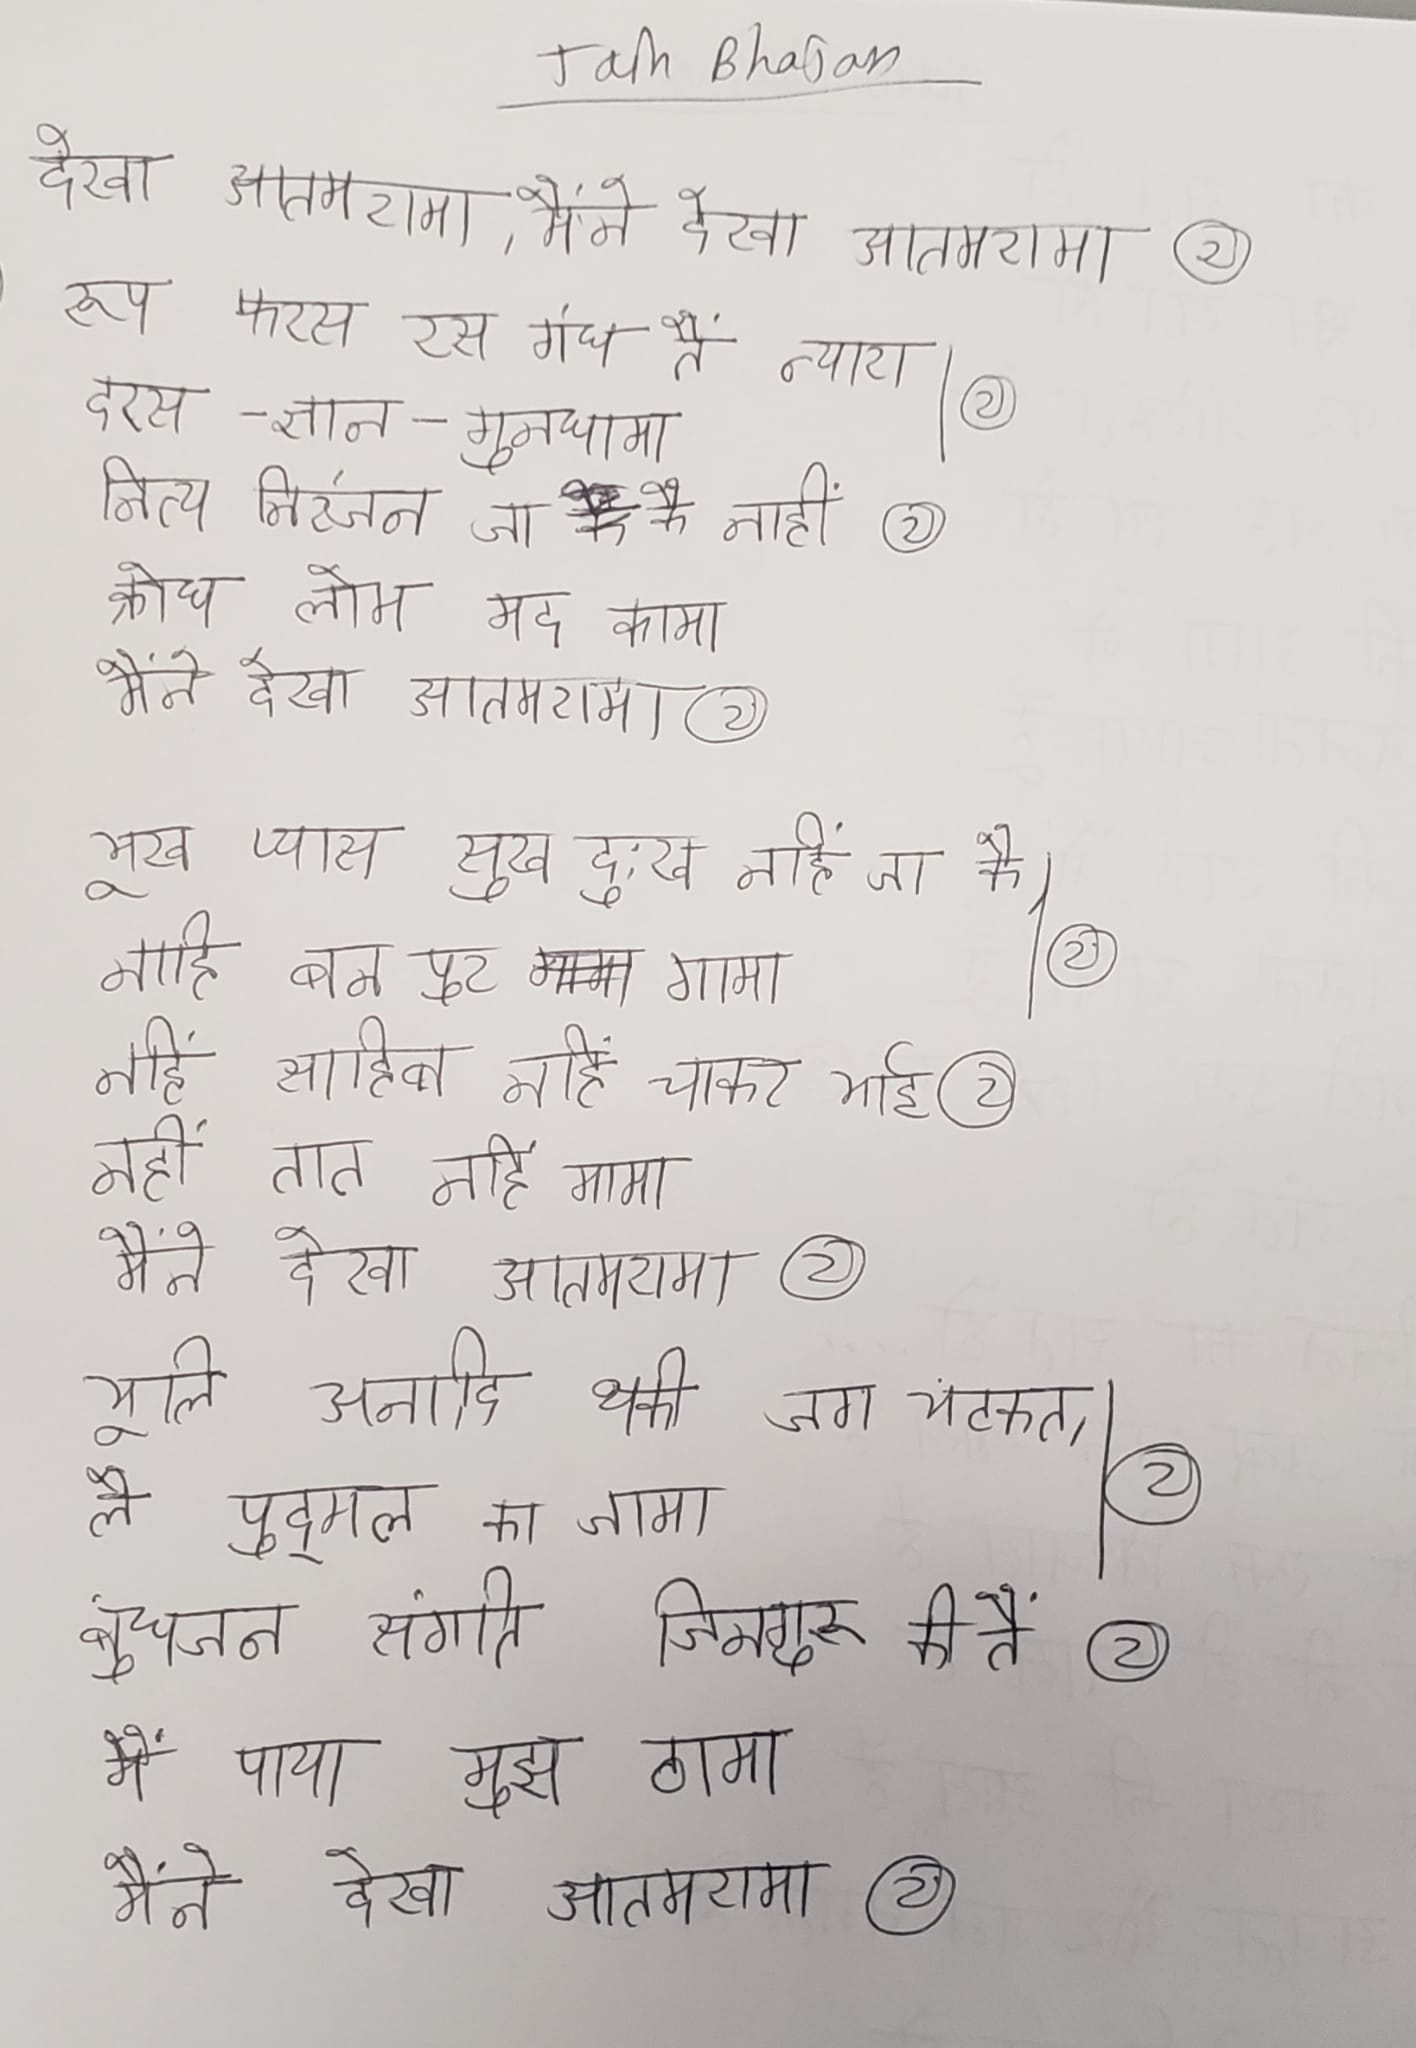 Jain Bhajan
देखा आतमरामा, मैंने देखा आतमरामा २
रूप फरस रस गंध तैं न्यारा २
दरस - ज्ञान - गुनधामा
नित्य निरंजन जा कै नाहीं २
क्रोध लोभ मद कामा
मैंने देखा आतमरामा २
भूख प्यास सुख दुःख नहिं जा कै,
नाहि बन पुर गामा २
नहिं साहिब नहिं चाकर भाई २
नहीं तात नहिं मामा
मैंने देखा आतमरामा २
भूलि अनादि थकी जग भटकत,
लै पुद्गल का जामा २
बुधजन संगति जिनगुरु की तैं २
मैं पाया मुझ ठामा
मैंने देखा आतमरामा २